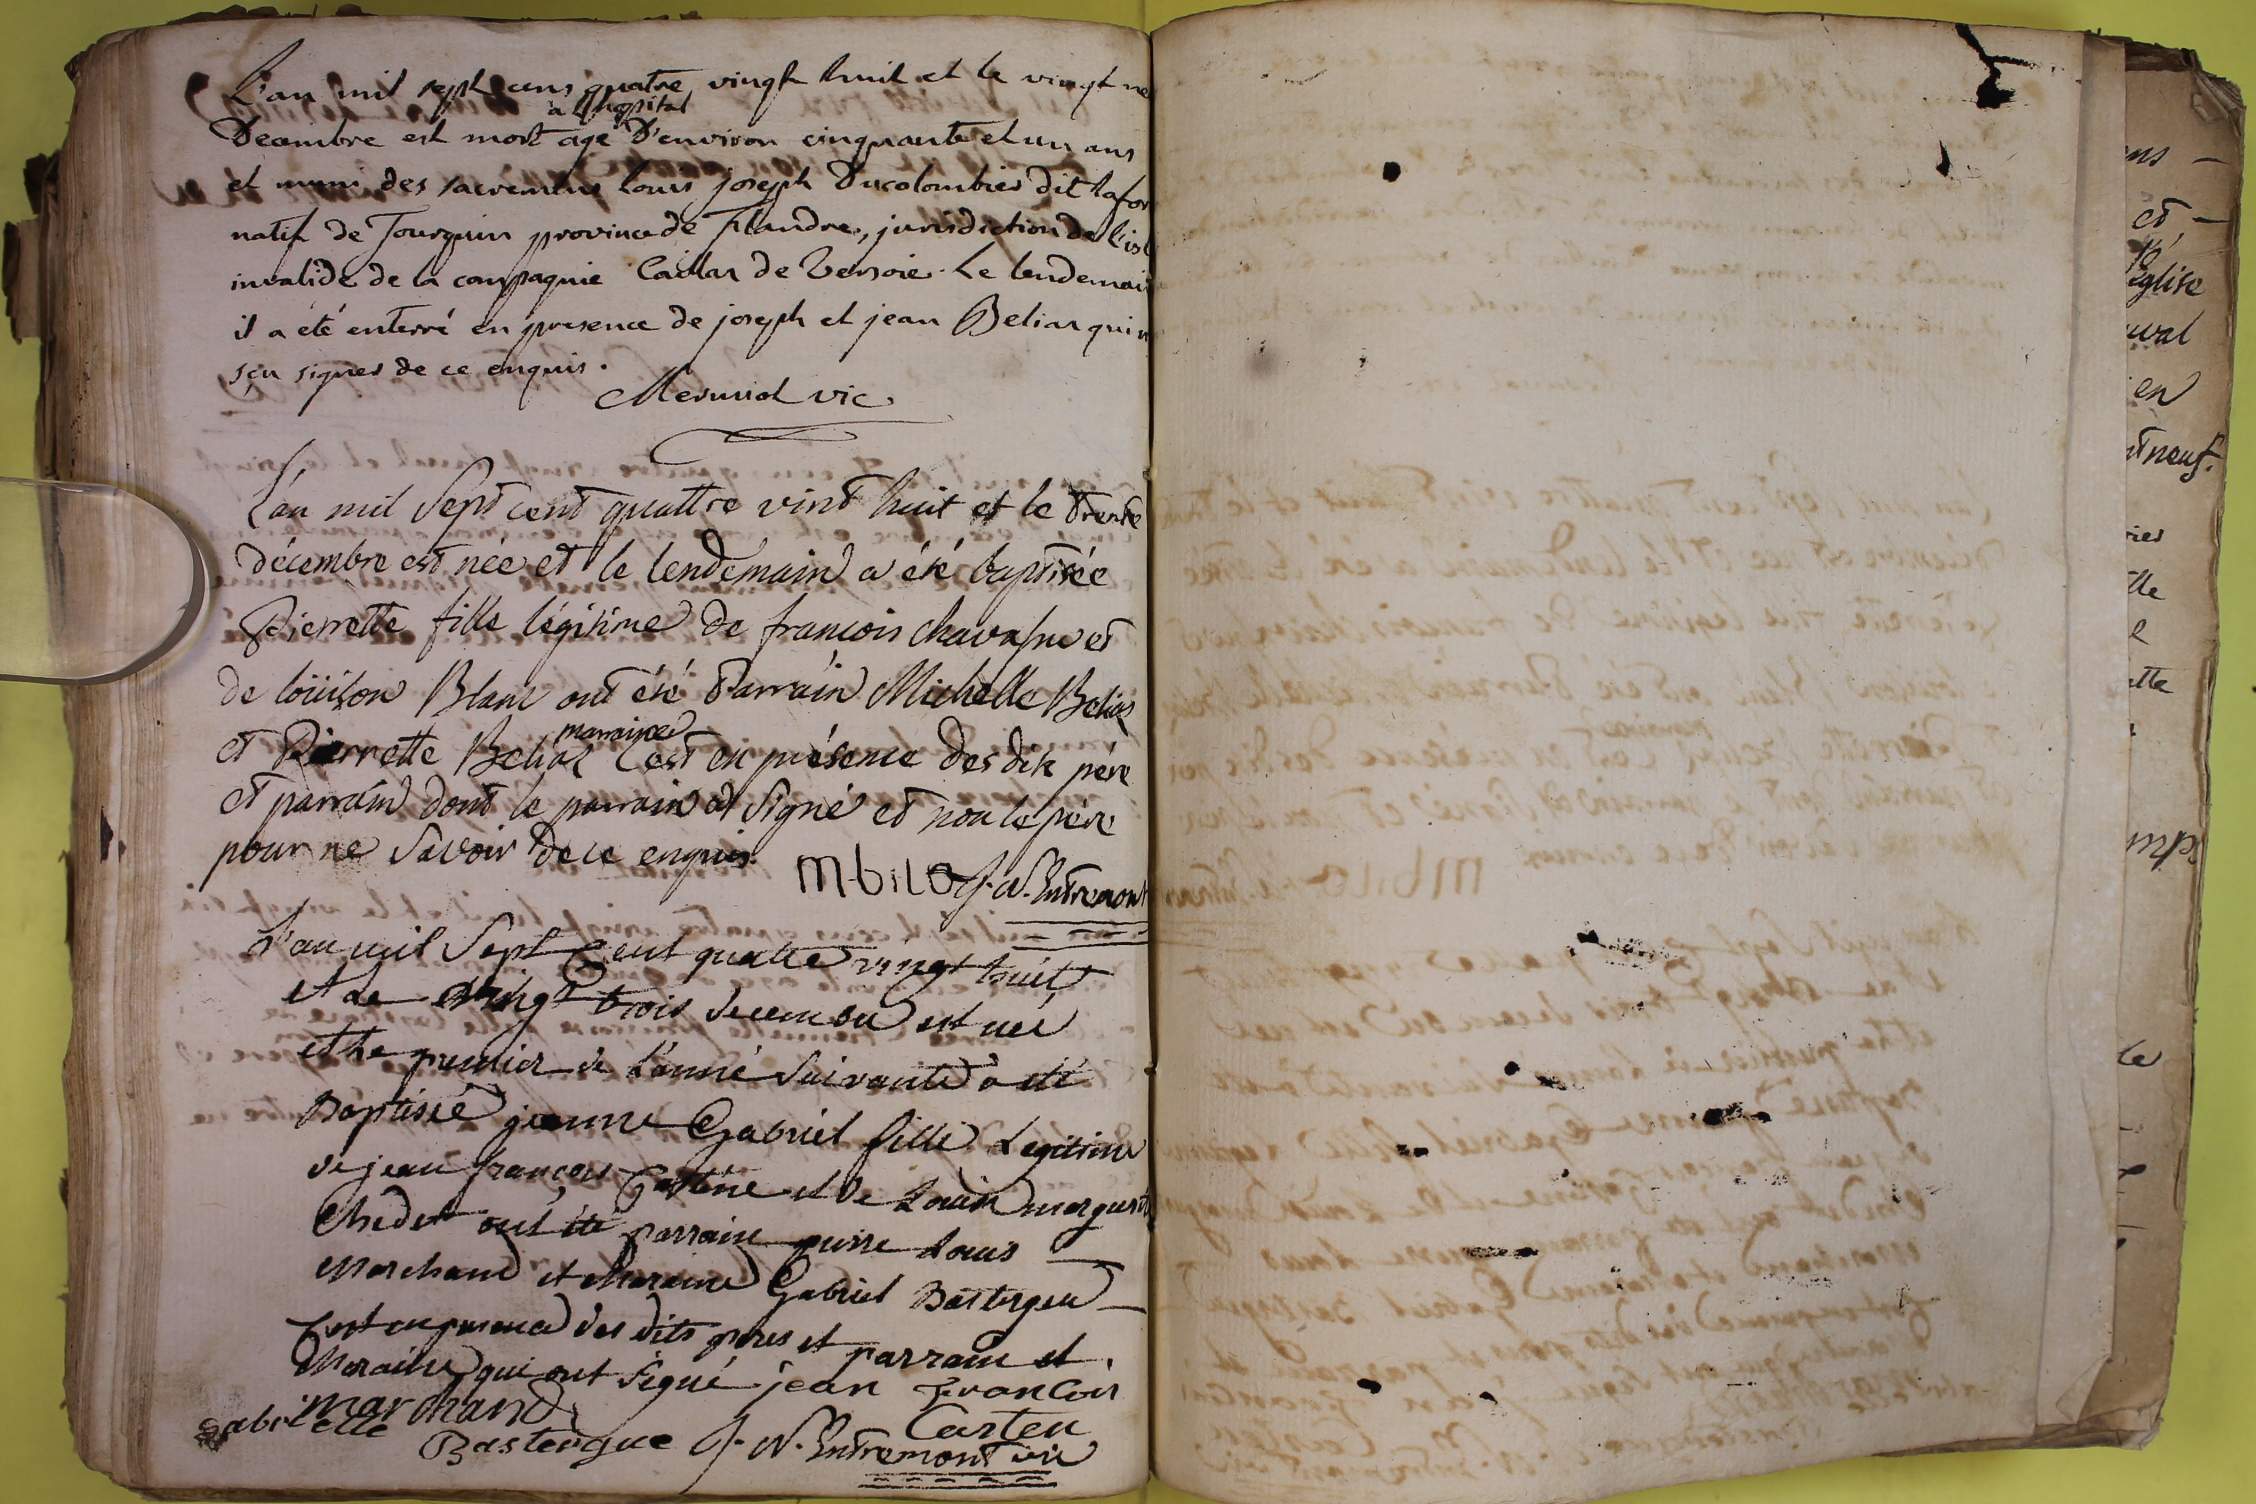 L'an mil sept cens quatre vingt huit et le vingt ne
à l'hopital
Decembre est mort agé d'environ cinquante et un ans
et muni des sacremens Louis joseph Ducolombier dit Lafor
natif de Tourquin province de Flandre, jurisdiction de l'isl
invalide de la compagnie Cailar de Versoie. Le lendemain
il a été enterré en presence de joseph et jean Beliar qui n
sçu signer de ce enquis.
Mermod vic
L'an mil Sept cent quattre vint huit et le Trente
décembre est née et le lendemain a été baptisée
Pierrette fille légitime de françois chavasne et
de loüison Blanc ont été Parrain Michelle Beliar
marraine
et Pierrette Beliar C'est en présence des dits père
et parrain dont le parrain a Signé et non le père
pour ne Savoir de ce enquis.
M bilo J. N. Entremont
L'an mil Sept Cent quatre vingt huit
et Le vingt trois decembre est née
et le premier de L'anné Suivante a été
Baptisée jeanne Gabriel fille Legitime
de jean françois et de Louise margueri
Chedel ont été parrain pierre Louis
Marchand et Maraine Gabriel Bastergue
C'est en presence des dits peres et parrain et
Maraine qui ont Signé jean Francois
marchand Carten
gabrielle Bastergue J. N. Entremont vic
ens
et
église
uval
en
t neuf.
ries
lle
e
ette
mp
le